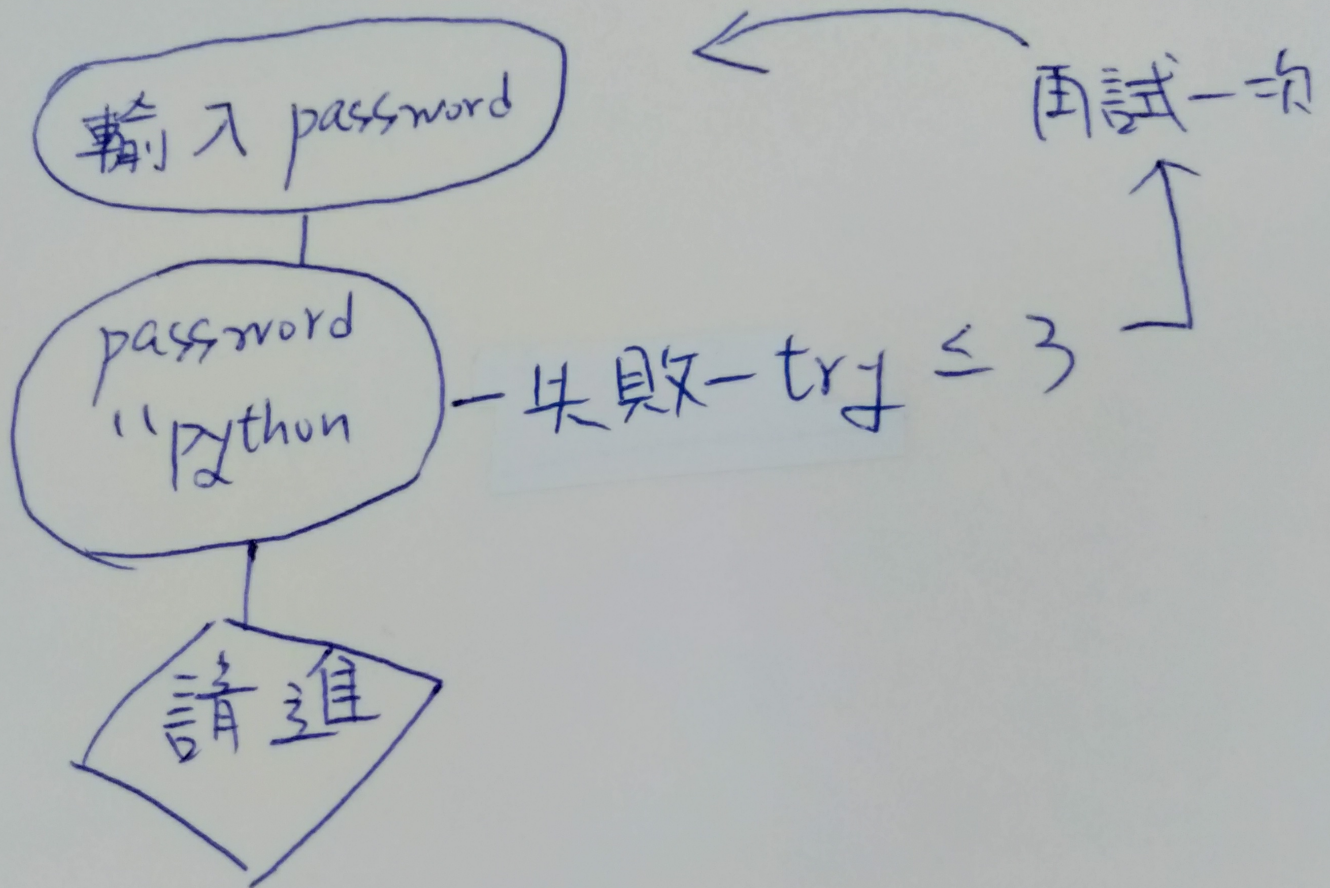 輸入 password
再試一次
password
"python
一失敗一try ≤ 3
請進